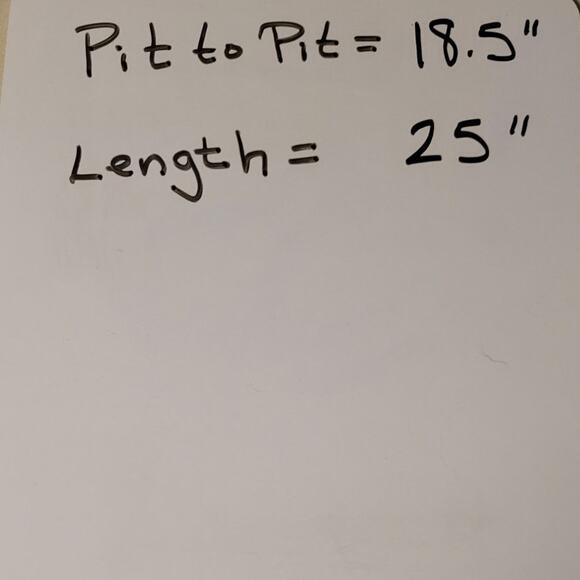 Pit to Pit = 18.5"
Length = 25"